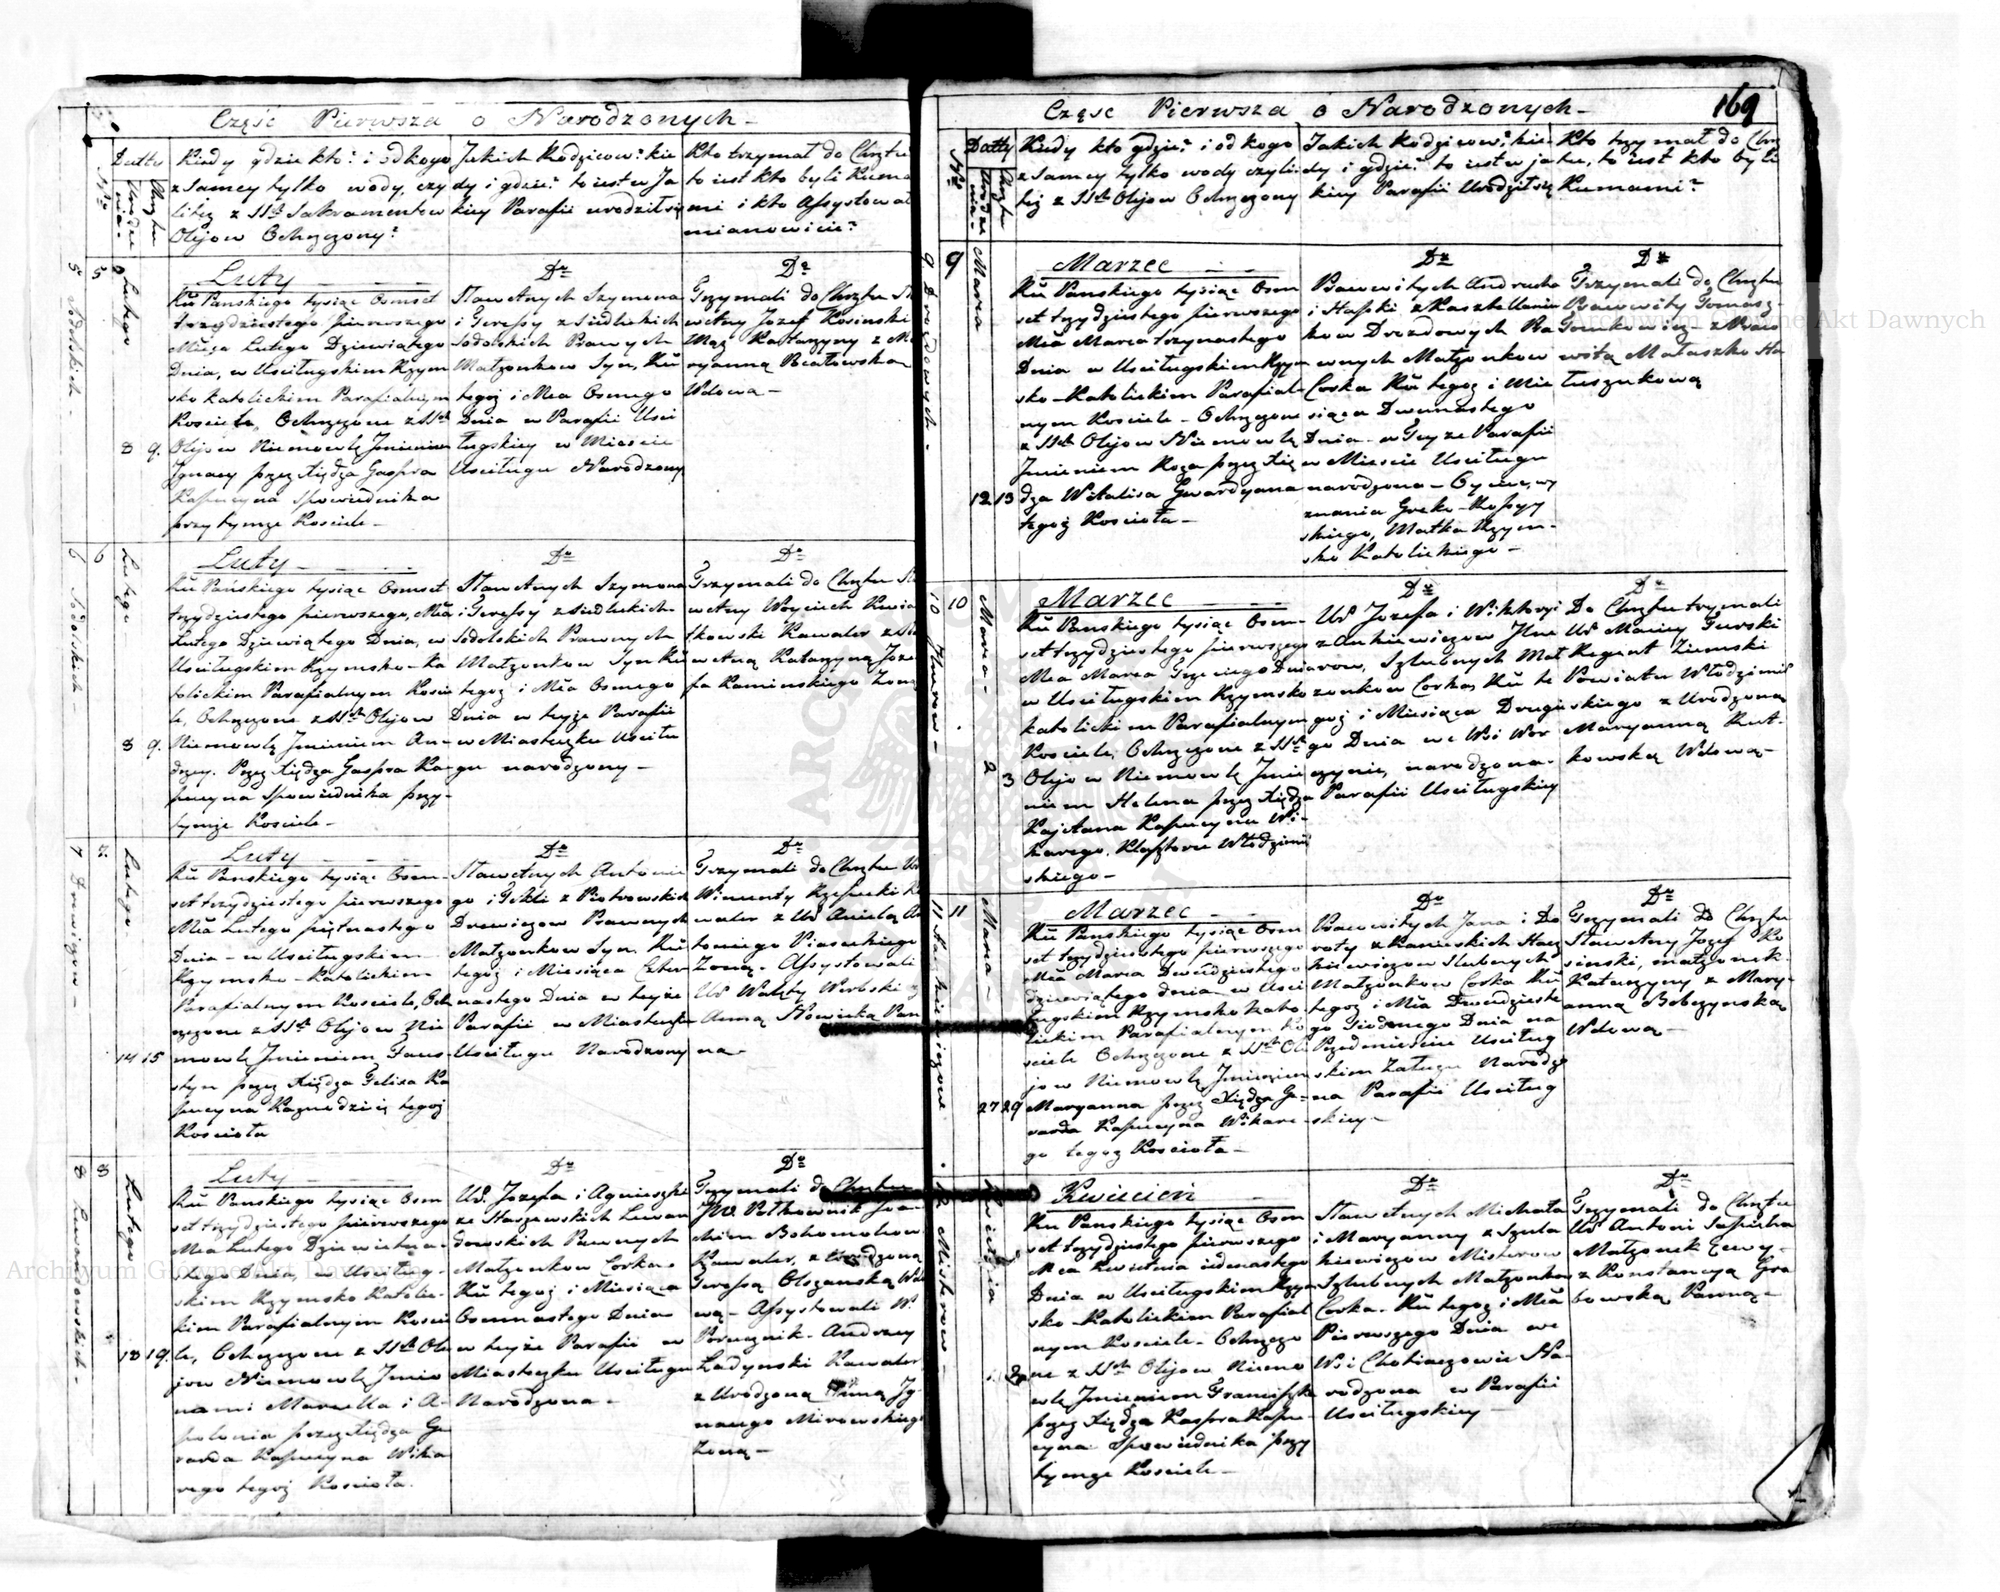 Część Pierwsza o Narodzonych -
Nro
Datta
Urodze
nia
Chrztu
Kiedy gdzie kto? i od kogo
z samey tylko wody, czy
liteż z SStt Sakramentow
Olijow Ochrzczony?
Jakich Rodzicow? kie
dy i gdzie? to iest w Ja
kiey Parafii urodził się
Kto trzymał do Chrztu
to iest kto byli Kuma
mi i kto Assystował
mianowicie?
5
Sodolskich -
5
Lutego
8
9.
Luty
Ru Panskiego tysiąc Osmset
trzydziestego pierwszego
Mca Lutego Dziewiątego
Dnia, w Usciługskim Rzym
sko katolickim Parafialnym
Kosciele, Ochrzczone z SStt
Olijow Niemowle Jmieniem
Ignacy przez Xiędza Gaspra
Kapucyna Spowiednika
przy tymże Kosciele -
Do
Sławetnych Szymona
i Teressy z Siedleckich
Sodolskich Prawnych
Małżonkow Syn, Ru
tegoż i Mca Osmego
Dnia w Parafii Usci
ługskiey w Miescie
Usciługu Narodzony
Do
Trzymali do Chrztu Sła
wetny Jozef Kosinski
Mąż Katarzyny z Ma
ryanną
Wdowa -
6
Sodolskich -
6
Lutego
8
9.
Luty
Ru Pańskiego tysiąc Osmset
trzydziestego pierwszego, Mca
Lutego Dziewiątego Dnia, w
Usciługskim Rzymsko-Ka
tolickim Parafialnym Koscie
le, Ochrzczone z SStt Olijow
Niemowle Jmieniem An-
drzey. Przez Xiędza Gaspra Ka-
pucyna Spowiednika przy-
tymże Kosciele -
Do
Sławetnych Szymona
i Teressy z Siedleckich
Sodolskich Prawnych
Małżonkow Syn Ru
tegoż i Mca Osmego
Dnia w teyże Parafii
w Miasteczku Usciłu
gu narodzony -
Do
Trzymali do Chrztu Sła
wetny Woyciech
Kawaler z Sła
wetną Katarzyną Joze
fa Kaminskiego Żoną
7
Drewiczow -
7.
Lutego
14
15
Luty
Ru Panskiego tysiąc Osm-
set trzydziestego pierwszego
Mca Lutego piętnastego
Dnia - w Usciługskim
Rzymsko - Katolickim
Parafialnym Kosciele, Och
rzczone z SStt Olijow Nie
mowle Jmieniem Faus
tyn przez Xiędza Felixa Ka
pucyna Kaznodzieię tegoż
Koscioła
Do
Sławetnych Antonie
go i Tekli z Piotrowskich
Drewiczow Prawnych
Małżonkow Syn. Ru
tegoż i Miesiąca Czter
nastego Dnia w teyże
Parafii w Miasteczku
Usciługu Narodzony
Do
Trzymali do Chrztu Ur
Wincenty Rzepecki Ka
waler z Ur Anielą An
toniego Piaseckiego
Żoną. Assystowali
Ur Walęty Werbski z
Anną Nowicką Pan
na -
8
Lewandowskich -
8
Lutego
18
19.
Luty
Ru Panskiego tysiąc Osm
set trzydziestego pierwszego
Mca Lutego Dziewietna-
stego Dnia, w Usciług-
skim Rzymsko Katolic-
kim Parafialnym Koscie
le, Ochrzczone z SStt Oli
jow Niemowle Jmio
nami Marcella i A-
polonia przez Xiędza Ge
rarda Kapucyna Wika
rego tegoż Kosciola.
Do
Ur. Jozefa i Agnieszki
ze Staszewskich Lewan
dowskich Prawnych
Małżonkow Corka
Ru tegoż i Miesiąca
Osmnastego Dnia
w teyże Parafii w
Miasteczku Usciługu
Narodzona -
Do
Trzymali do Chrztu
JW. Połkownik Joa-
chim Bohomolow
Kawaler, z Urodzoną
Teressą Olszanską Wdo
wą - Assystowali W.
Porucznik - Andrzey
Ładynski Kawaler
z Urodzoną Anną Jg-
nacego Mirowskiego
Żoną -
Częsc Pierwsza o Narodzonych -
169
Nro
Datty
Urodze
nia
Chrztu
Kiedy kto gdzie? i od kogo
z samey tylko wody czyli
też z SStt Olijow Ochrzczony
Jakich Rodzicow? kie-
dy i gdzie? to iest w ja
kiey Parafii Urodził się
Kto trzymał do Chrz
tu, to iest kto byli
Kumami?
9
Drozdowych -
9
Marca
12
13
Marzec
Ru Panskiego tysiąc Osm
set trzydziestego pierwszego
Mca Marca trzynastego
Dnia w Usciługskim Rzym-
sko-Katolickim Parafial-
nym Kosciele - Ochrzczone
z SStt Olijow Niemowle
Jmieniem Roza przez Xię
dza Witalisa Gwardyana
tegoż Kosciola -
Do
Pracowitych Andrucha
i Hapki z Kasztellanow
kow Drozdowych Pra
wnych Małżonkow
Corka Ru tegoż i Mie
siąca Dwunastego
Dnia - w Teyże Parafii
w Miescie Usciługu
narodzona - Oyciec, wy
znania Greko-Rossyy
skiego, Matka Rzym-
sko Katolickiego -
Do
Trzymali do Chrztu
Pracowity Tomasz-
z Praco
witą Mataszko Ha
łuszukową
10
Jlnerow -
10
Marca -
2
3
Marzec
Ru Panskiego tysiąc Osm-
set trzydziestego pierwszego
Mca Marca Trzeciego Dnia
w Usciługskim Rzymsko
katolickim Parafialnym
Kosciele, Ochrzczone z SStt
Olijow Niemowle Jmie
niem Helena przez Xiędza
Kajetana Kapucyna Wi-
karego. Klasztoru Włodzimir
skiego -
Do
Ur Jozefa i Wiktoryi
z Ankiewiczow Jlne
row, Szlubnych Mał
zonkow Corka, Ru te
goż i Miesiąca Drugie
go Dnia we Wsi Wor
czynie, narodzona -
Parafii Usciługskiey
Do
Do Chrztu trzymali
Ur Maciey Gurski
Regent Ziemski
Powiatu Włodzimir
skiego z Urodzoną
Maryanną Rut-
kowską Wdową -
11
11
Marca -
27
29
Marzec
Ru Panskiego tysiąc Osm
set trzydziestego pierwszego
Mca Marca Dwudziestego
dziewiątego dnia w Usci
ługskim Rzymsko kato
lickim Parafialnym Ko
sciele Ochrzczone z SStt Oli
jow Niemowle Jmieniem
Maryanna przez Xiędza Ge-
rarda Kapucyna Wikare-
go tegoż Kosciola -
Do
Pracowitych Jana i Do
roty z Kaniewskich
Slubnych
Małżonkow Corka Ru
tegoż i Mca Dwudzieste
go Siodmego Dnia na
Przedmiesciu Usciług
skim Załugu Narodzo
na Parafii Usciług
skiey -
Do
Trzymali do Chrztu
Sławetny Jozef Ko
sinski, małżonek
Katarzyny z Mary-
anną Bobrzynską
Wdową -
12
Misterow -
Kwietnia
Kwiecień
Ru Panskiego tysiąc Osm
set trzydziestego pierwszego
Mca Kwietnia iedenastego
Dnia w Usciługskim Rzym
sko-Katolickim Parafial
nym Kosciele - Ochrzczo
ne z SStt Olijow Niemo
wle Jmieniem Franciszka
przez Xiędza Kaspra Kapu-
cyna Spowiednika przy
tymże Kosciele -
Do
Sławetnych Michała
i Maryanny z Szula
kiewiczow Misterow
Szlubnych Małżonkow
Corka - Ru tegoż i Mca
Pierwszego Dnia we
Wsi Chotiaczowie Na-
rodzona w Parafii
Usciługskiey -
Do
Trzymali do Chrztu
Ur Antoni Sapieha
Małżonek Ewy -
z Konstancyą Gra
bowską Panną -
Archiwum Główne Akt Dawnych
Archiwum Główne Akt Dawnych